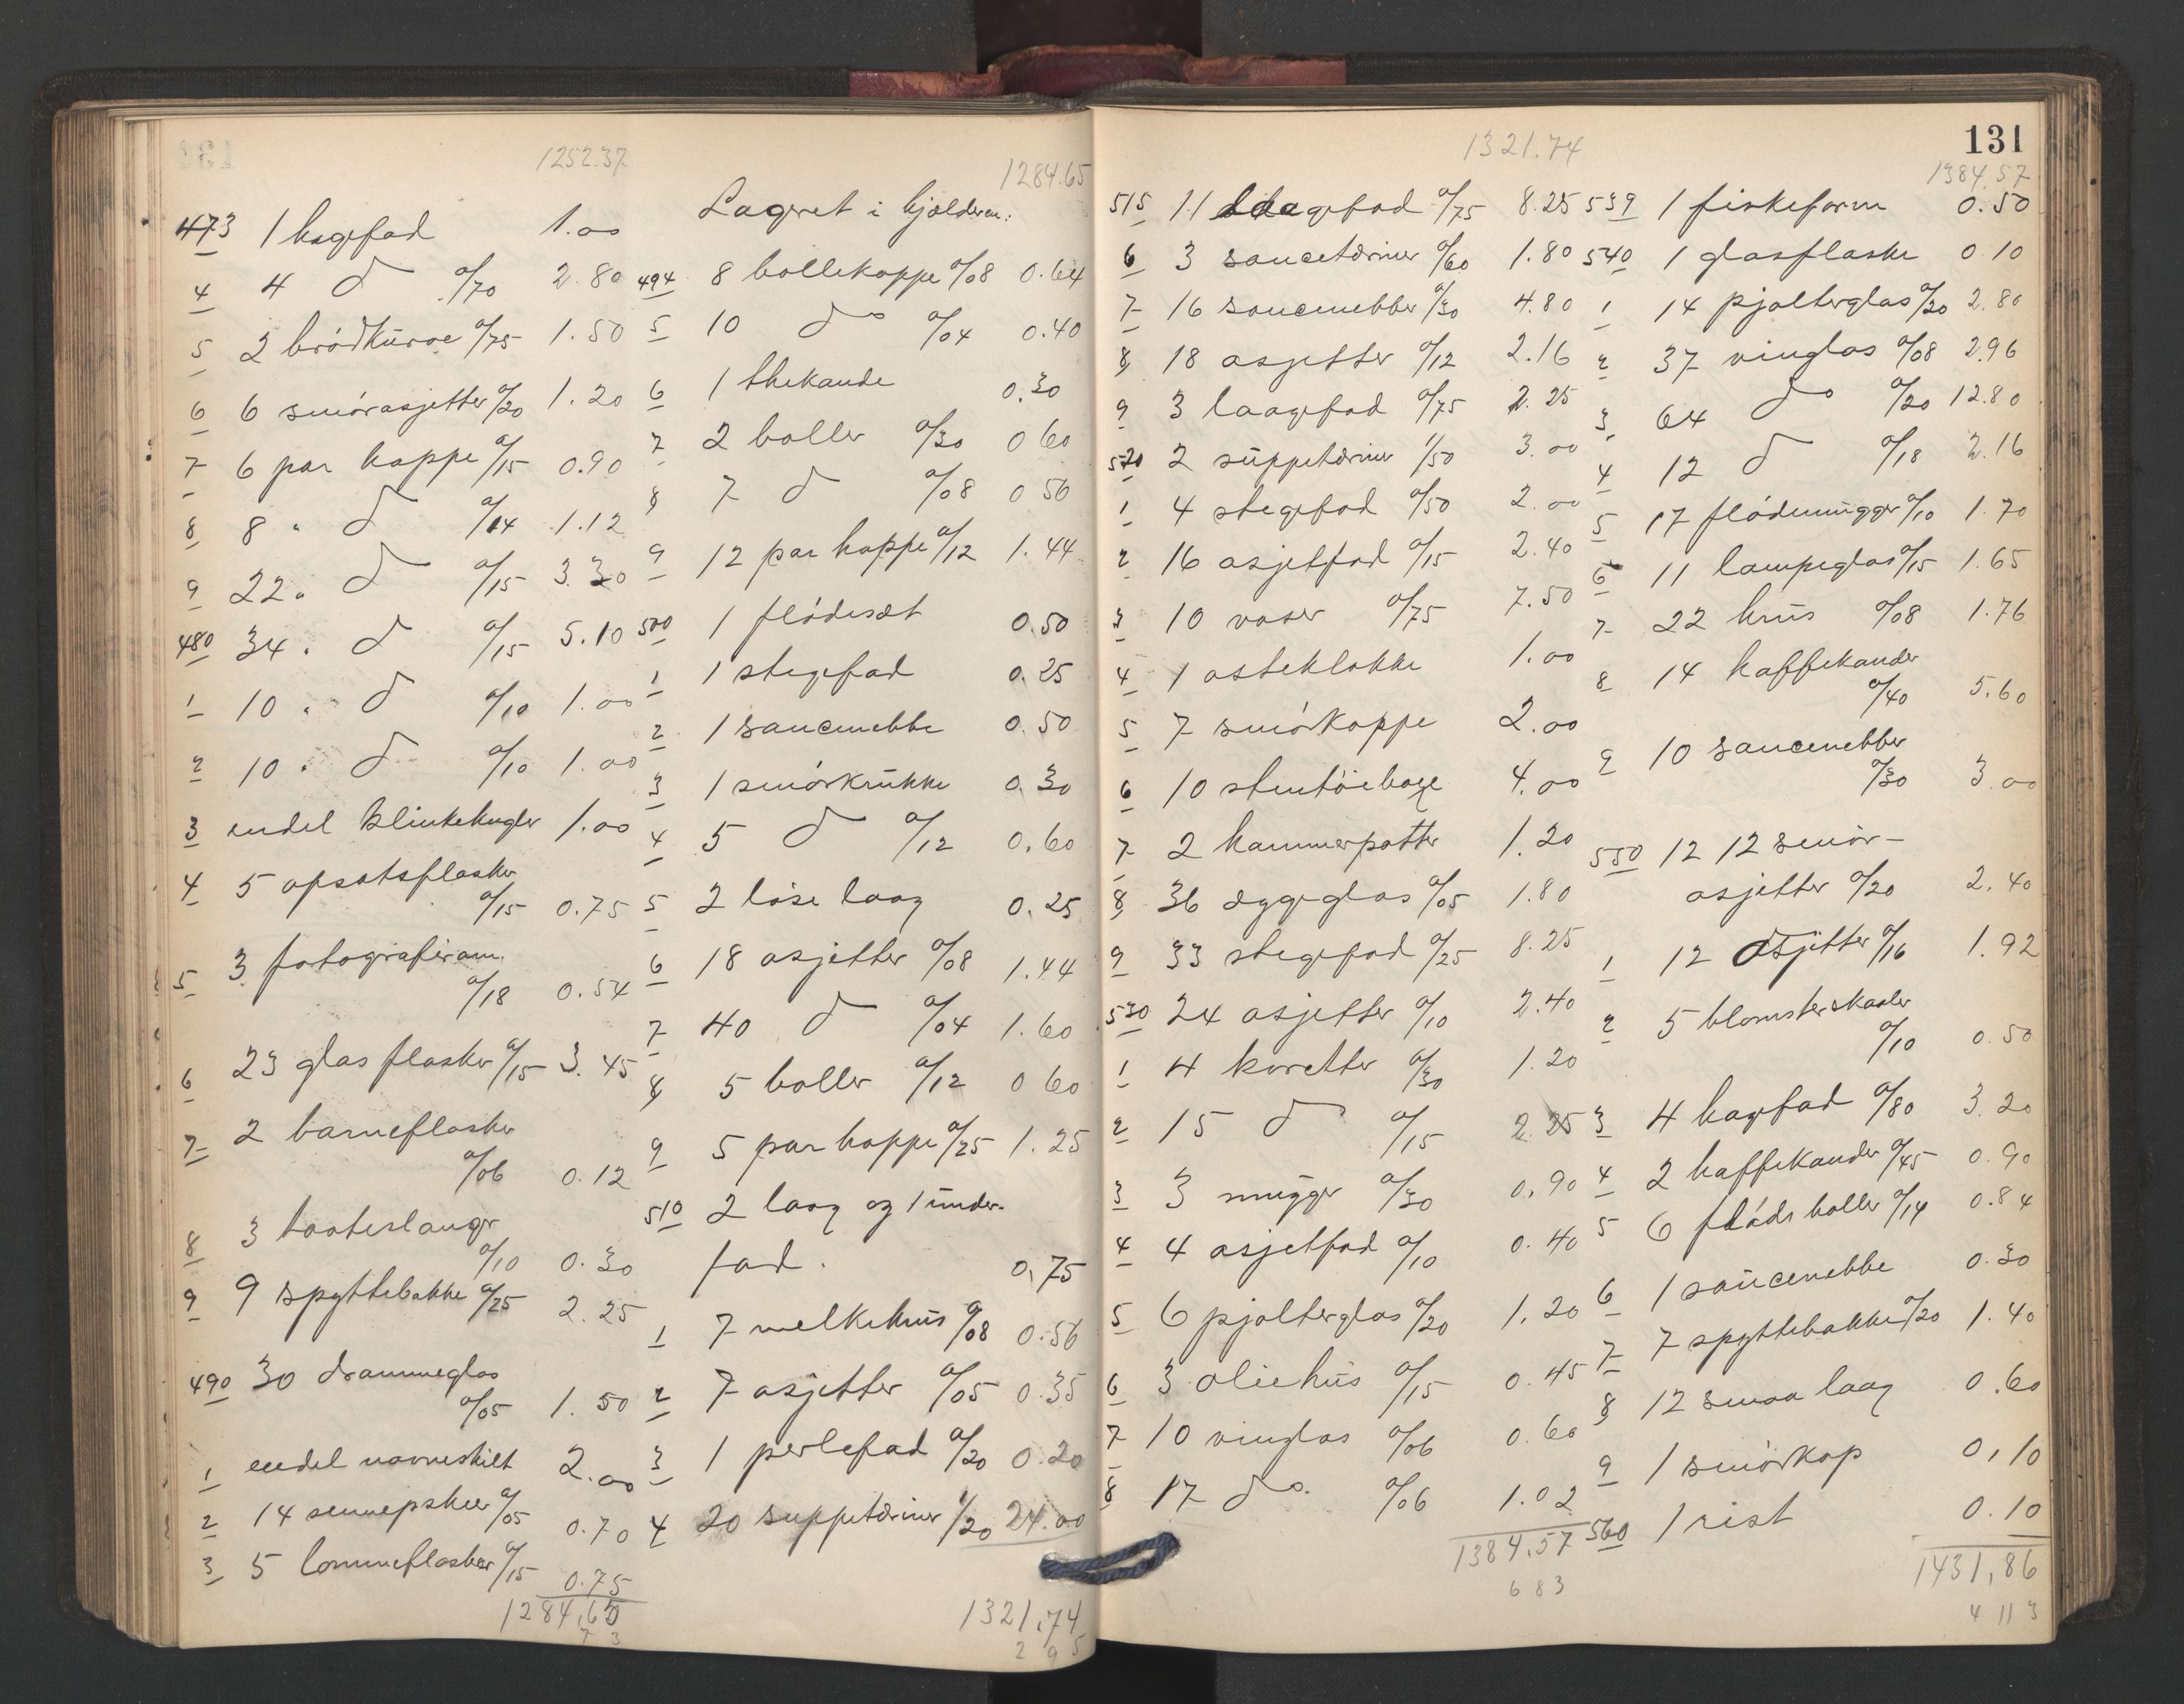 1252.37
473 1 kagefad 1.00
4 4 do a/70 2.80
5 2 brödkurve a/75 1.50
6 6 smörasjetter a/20 1.20
7 6 par koppe a/15 0.90
8 8 " do a/14 1.12
9 22 " do a/15 3.30
480 34 " do a/15 5.10
1 10 " do a/10 1.00
2 10 " do a/10 1.00
3 endel klinkekugler 1.00
4 5 opsatsflasker
a/15 0.75
5 3 fotografiram.
a/18 0.54
6 23 glas flasker a/15 3.45
7 2 barneflasker
a/06 0.12
8 3 taateslanger
a/10 0.30
9 9 spyttebakke a/25 2.25
490 30 drammeglas
a/05 1.50
1 endel navneskilt 2.00
2 14 sennepskeer a/05 0.70
3 5 lommeflasker a/15 0.75
1284.65
7 3
1284.65
Lageret i kjælderen:
494 8 bollekoppe a/08 0.64
5 10 do a/04 0.40
6 1 thekande 0.30
7 2 boller a/30 0 60
8 7 do a/08 0 56
9 12 par koppe a/12 1.44
500 1 flödesæt 0.50
1 1 stegefad 0.25
2 1 saucenebbe 0.50
3 1 smörkrukke 0.30
4 5 do a/12 0.60
5 2 löse laag 0.25
6 18 asjetter a/08 1.44
7 40 do a/04 1.60
8 5 boller a/12 0 60
9 5 par koppe a/25 1.25
510 2 laag og 1 under-
fad. 0.75
1 7 melkekrus a/08 0.56
2 7 asjetter a/05 0.35
3 1 perlefad a/20 0.20
4 20 suppeterriner 1/20 24.00
1321.74
2 9 5
131
1321.74
515 11 laagefad a/75 8.25
6 3 sauceterriner a/60 1.80
7 16 saucenebber a/30 4.80
8 18 asjetter a/12 2.16
9 3 laagefad a/75 2.25
520 2 suppeterriner 1/50 3.00
1 4 stegefad a/50 2.00
2 16 asjetfad a/15 2.40
3 10 vaser a/75 7.50
4 1 osteklokke 1.00
5 7 smörkoppe 2.00
6 10 stentöibage 4.00
7 2 kammerpotter 1.20
8 36 æggeglas a/05 1.80
9 33 stegefad a/25 8.25
530 24 asjetter a/10 2.40
1 4 karetter a/30 1.20
2 15 do a/15 2.25
3 3 mugger a/30 0.90
4 4 asjetfad a/10 0.40
5 6 pjolterglas a/20 1.20
6 3 oliekrus a/15 0.45
7 10 vinglas a/06 0.60
8 17 do. a/06 1.02
1384.57
6 8 3
1384.57
539 1 fiskeform 0.50
540 1 glasflaske 0 10
1 14 pjolterglas a/20 2.80
2 37 vinglas a/08 2.96
3 64 do a/20 12.80
4 12 do a/18 2.16
5 17 flödemugger a/10 1.70
6 11 lampeglas a/15 1.65
7 22 krus a/08 1.76
8 14 kaffekander
a/40 5.60
9 10 saucenebber
a/30 3.00
550 12 12 smör-
asjetter a/20 2.40
1 12 Asjetter a/16 1.92
2 5 blomsterskaaler
a/10 0.50
3 4 kagefad a/80 3.20
4 2 kaffekander a/45 0.90
5 6 flöde boller a/14 0.84
6 1 saucenebbe 0.30
7 7 spyttebakke a/20 1.40
8 12 smaa laag 0.60
9 1 smörkop 0.10
560 1 rist 0.10
1431,86
4 11 3